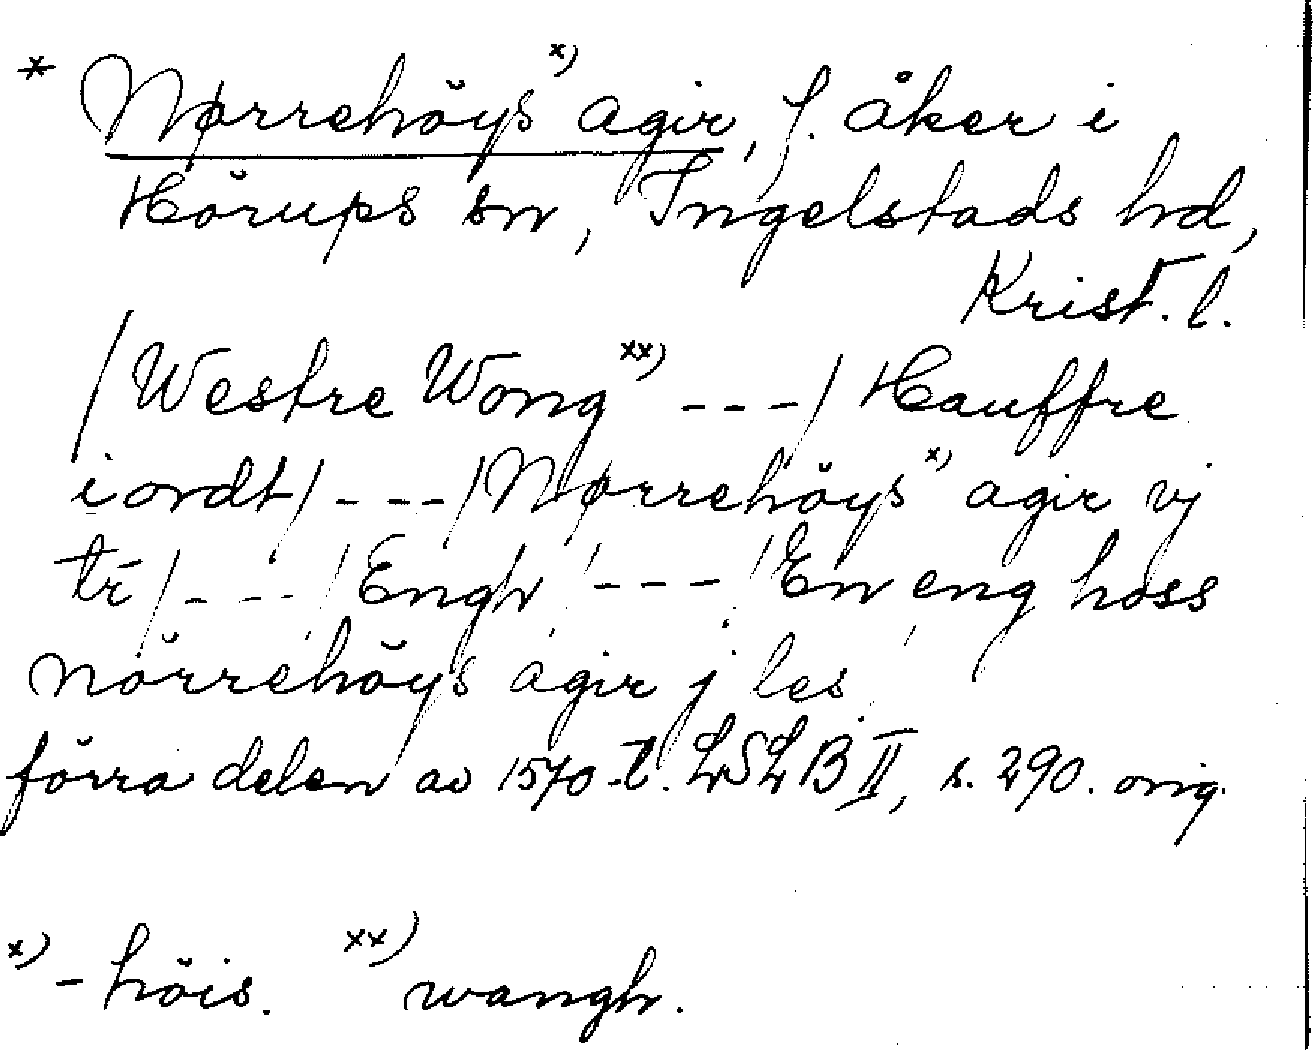 * Nørrehöys x) agir, f. åker i
Hörups sn, Ingelstads hd,
Krist. l.
/Westre Wong xx) ---/ Hauffre
iordt/---/Nørrehöys x) agir vj
tr̄/---/Engh/---/En eng hoss
nörrehöys agir j les
förra delen av 1570-t. LSLB II, s. 290. orig.
x) -höis. xx) wangh.